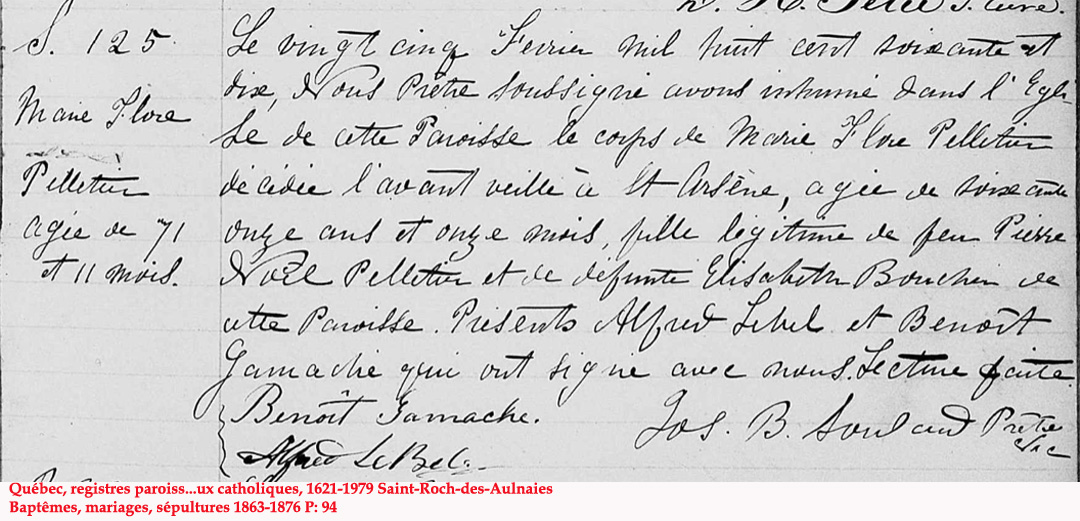 S. 125
Marie Flore
Pelletier
agée de 71
et 11 mois.
Le vingt cinq Fevrier mil huit cent soixante et
dix, Nous Prêtre soussigné avons inhumé dans l'Egli
se de cette Paroisse le corps de Marie Flore Pelletier
décédée l'avant veille à St Arsène, agée de soixante
onze ans et onze mois, fille légitime de feu Pierre
Noël Pelletier et de défunte Elisabeth Boucher de
cette Paroisse. Présents Alfred Lebel et Benoît
Gamache qui ont signé avec nous. Lecture faite.
Benoît Gamache.
Alfred LeBel.
Jos. B. Soulard Prêtre
Vic
Québec, registres paroiss...ux catholiques, 1621-1979 Saint-Roch-des-Aulnaies
Baptêmes, mariages, sépultures 1863-1876 P: 94